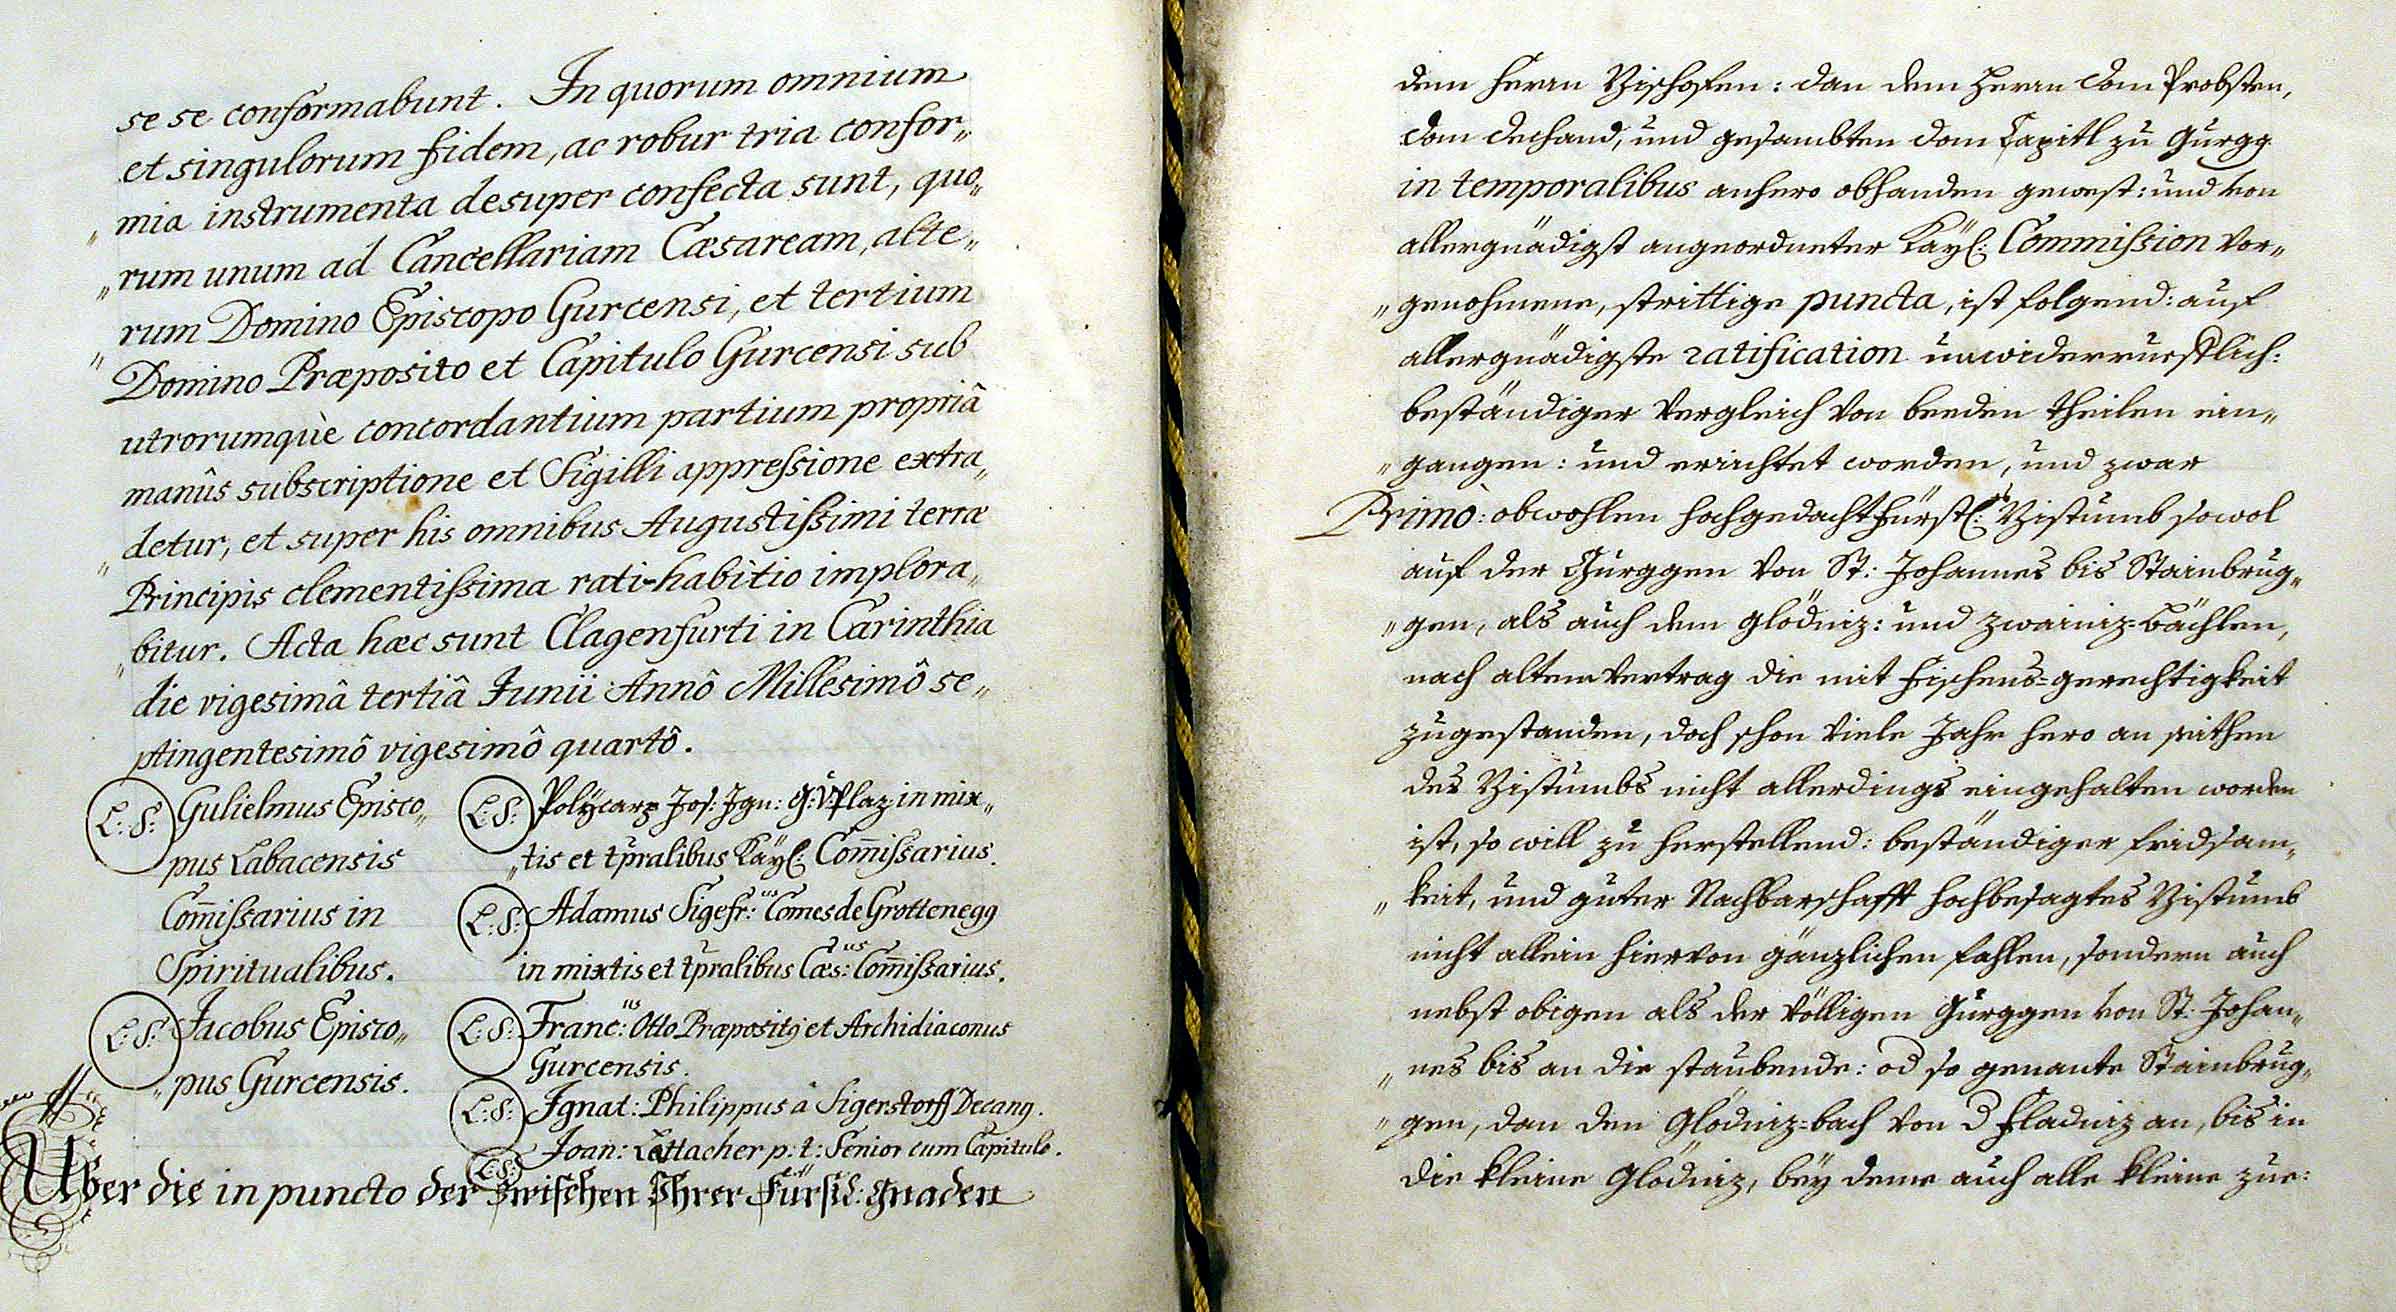 se se conformabunt. In quorum omnium
et singulorum fidem, ac robur tria confor„
„mia instrumenta desuper confecta sunt, quo„
„rum unum ad Cancellariam Cæsaream, alte„
„rum Domino Episcopo Gurcensi, et tertium
Domino Præposito et Capitulo Gurcensi sub
utrorumquè concordantium partium propriâ
manûs subscriptione et Sigilli appreſsione extra„
„detur, et super his omnibus Augustiſsimi terræ
Principis clementiſsima rati-habitio implora„
„bitur. Acta hæc sunt Clagenfurti in Carinthia
die vigesimâ tertiâ Junii Annô Millesimô se„
ptingentesimô vigesimô quartô.
L: S: Gulielmus Episco„
pus Labacensis
Com̄iſsarius in
Spiritualibus.
L: S: Jacobus Episco„
„pus Gurcensis.
L: S: Polÿcarp Jos: Ign: G: V: Plaz in mix„
„tis et tp̄ralibus Kaÿl: Com̄iſsarius.
L: S: Adamus Sigefr:us Comes de Grottenegg
in mixtis et tp̄ralibus Cæs:us Com̄iſsarius.
L: S: Franc:us Otto Præpositꝰ et Archidiaconus
Gurcensis.
L: S: Ignat: Philippus â Sigerstorff Decanꝰ.
L: S: Joan: Lattacher p: t: Senior cum Capitulo.
Uber die in puncto der zwischen Ihrer Fürstl: Gnaden
dem Herrn Bischofen: dan dem Herrn Dom Probsten,
Dom Dechand, und gesambten Dom Capitl zu Gurgg
in temporalibus anhero obhanden gewest: und von
allergnädigst angeordneter Kaÿl: Commiſsion vor„
„genohmene, strittige puncta, ist folgend: auf
allergnädigste ratification unwiderruefflich:
beständiger Vergleich von beeden theilen ein„
„gangen: und errichtet worden, und zwar
Primò: obwohlen hochgedacht fürstl: Bistumb sowol
auf der Gurggen von St: Johannes bis Stainbrug„
„gen, als auch dem Glödniz: und Zwainiz-bächlen,
nach altem Vertrag die mit Fischens-gerechtigkeit
zugestanden, doch schon viele Jahr hero an seithen
des Bistumbs nicht allerdings eingehalten worden
ist, so will zu herstellend: beständiger fridsam„
„keit, und guter Nachbarschafft hochbesagtes Bistumb
nicht allein hiervon gänzlichen fahlen, sondern auch
nebst obigen als der völligen Gurggen von St: Johan„
„nes bis an die staubende: od so genante Stainbrug„
„gen, dan den Glödniz-bach von d Fladniz an, bis in
die kleine Glödniz, beÿ deme auch alle kleine zue: